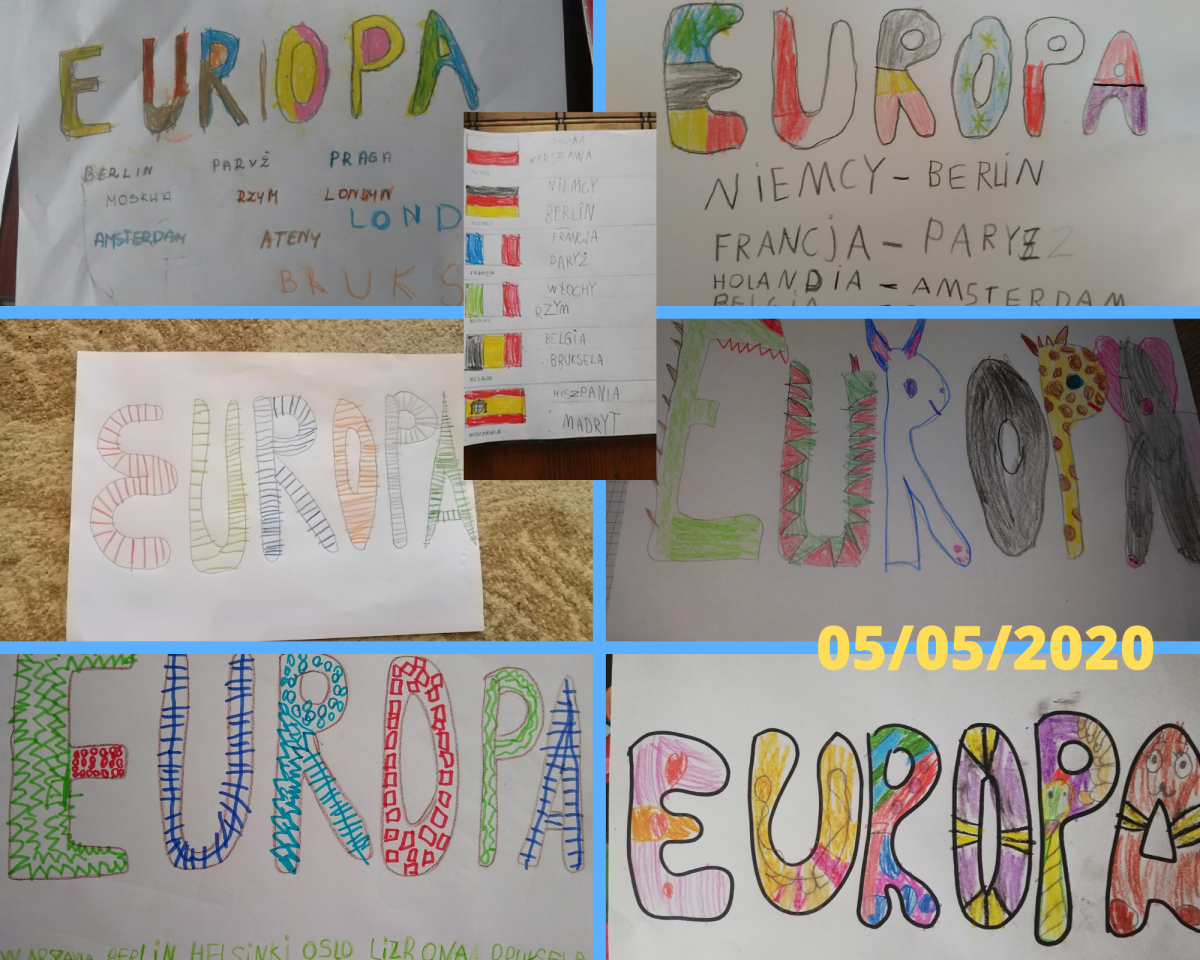 EURIOPA
BERLIN PARYŻ PRAGA
MOSKWA RZYM LONDYN
LOND
AMSTERDAM ATENY
BRUKS
POLSKA
WARSZAWA
NIEMCY
BERLIN
FRANCJA
PARYŻ
FRANCJA
WŁOCHY
RZYM
BELGIA
BRUKSELA
BELGIA
HISZPANIA
MADRYT
HISZPANIA
EUROPA
NIEMCY - BERLIN
FRANCJA - PARYŻ
HOLANDIA - AMSTERDAM
BELGIA
EUROPA
EUROPA
05/05/2020
EUROPA
WARSZAWA BERLIN HELSINKI OSLO LIZBONA BRUKSELA
EUROPA